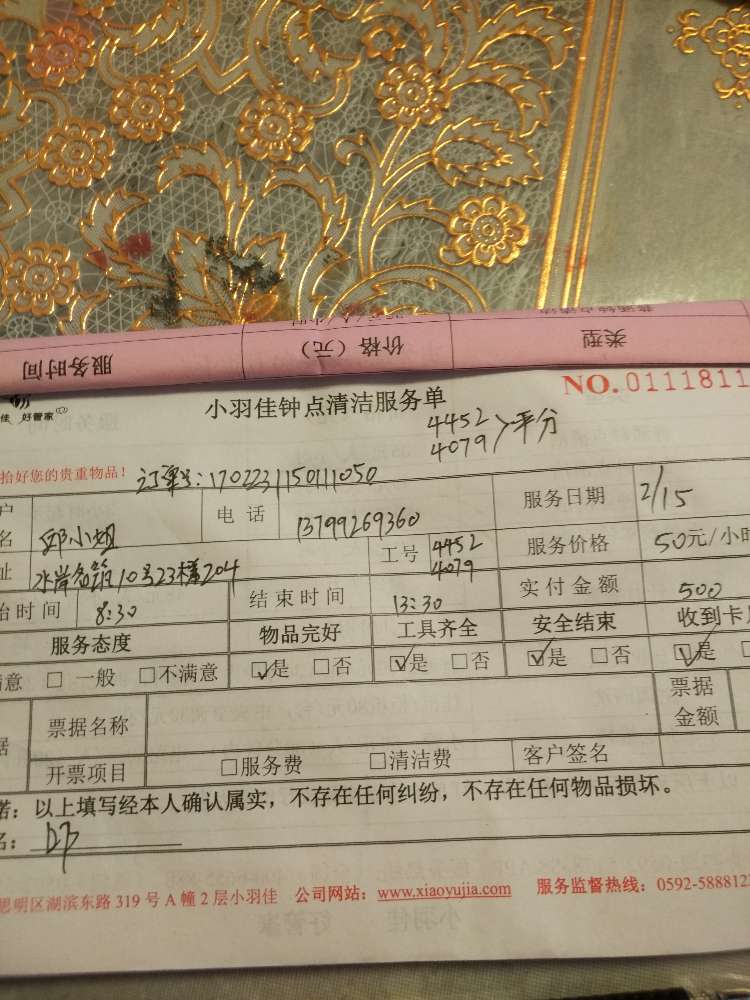 服务时间 价格（元） 类型
佳 好管家
小羽佳钟点清洁服务单
NO.0111811
4452
4079 >平分
抬好您的贵重物品！
订单号:170223115011050
户
名 邱小姐 电话 13799269360 服务日期 2/15
址 水岸名筑10号23樓204 工号 4452 4079 服务价格 50元/小时
始时间 8:30 结束时间 13:30 实付金额 500
服务态度 物品完好 工具齐全 安全结束 收到卡
满意 □ 一般 □不满意 ☑是 □否 ☑是 □否 ☑是 □否 ☑是
据 票据名称 票据金额
开票项目 □服务费 □清洁费 客户签名
诺：以上填写经本人确认属实，不存在任何纠纷，不存在任何物品损坏。
名：邱
思明区湖滨东路 319 号 A 幢 2 层小羽佳 公司网站：www.xiaoyujia.com 服务监督热线：0592-588812